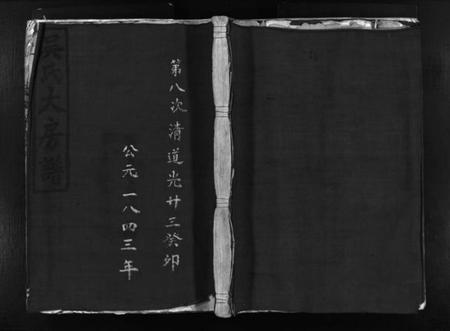 第八次清道光廿三癸卯
公元一八四三年
吳氏大房譜